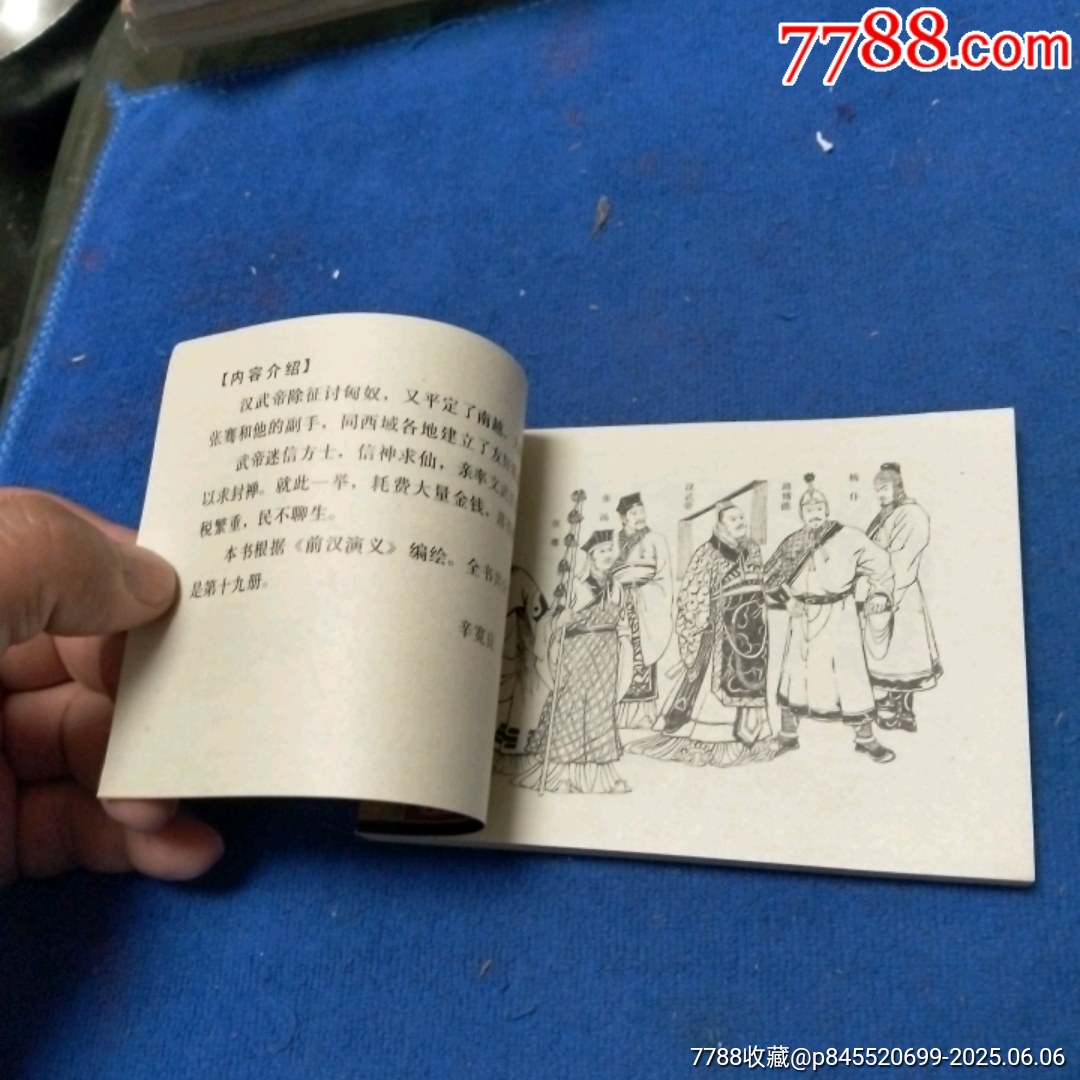 7788.com
【内容介绍】
汉武帝除征讨匈奴，又平定了南越，
张骞和他的副手，同西域各地建立了友好
武帝迷信方士，信神求仙，亲率文武
以求封禅。就此一举，耗费大量金钱，
税繁重，民不聊生。
本书根据《前汉演义》编绘。全书共
是第十九册。
辛宽良
张骞
张汤
汉武帝
路博德
杨仆
7788收藏@p845520699-2025.06.06